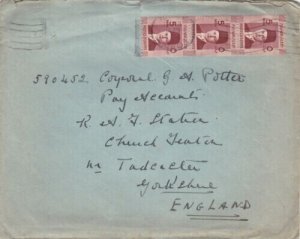 590452 Corporal G A Potter
Pay Accounts
R. A. F. Station
Church Fenton
Nr Tadcaster
Yorkshire
ENGLAND